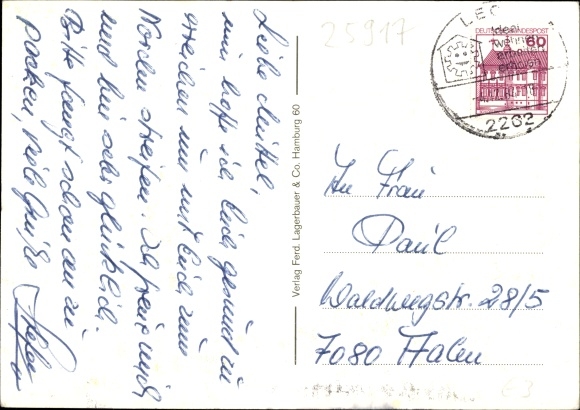 25917
LEC
Ideal
wohnen
erholen
DEUTSCHE BUNDESPOST
60
2262
Liebe
nun hoffe ich Euch gesund zu
um mit Euch zum
Norden streifen. Ich freue mich
und bin sehr glücklich.
Bitte fangt schon an zu
packen, viele Grüße
Verlag Ferd. Lagerbauer & Co. Hamburg 60
An Frau
Paul
28/5
7080 Aalen
63